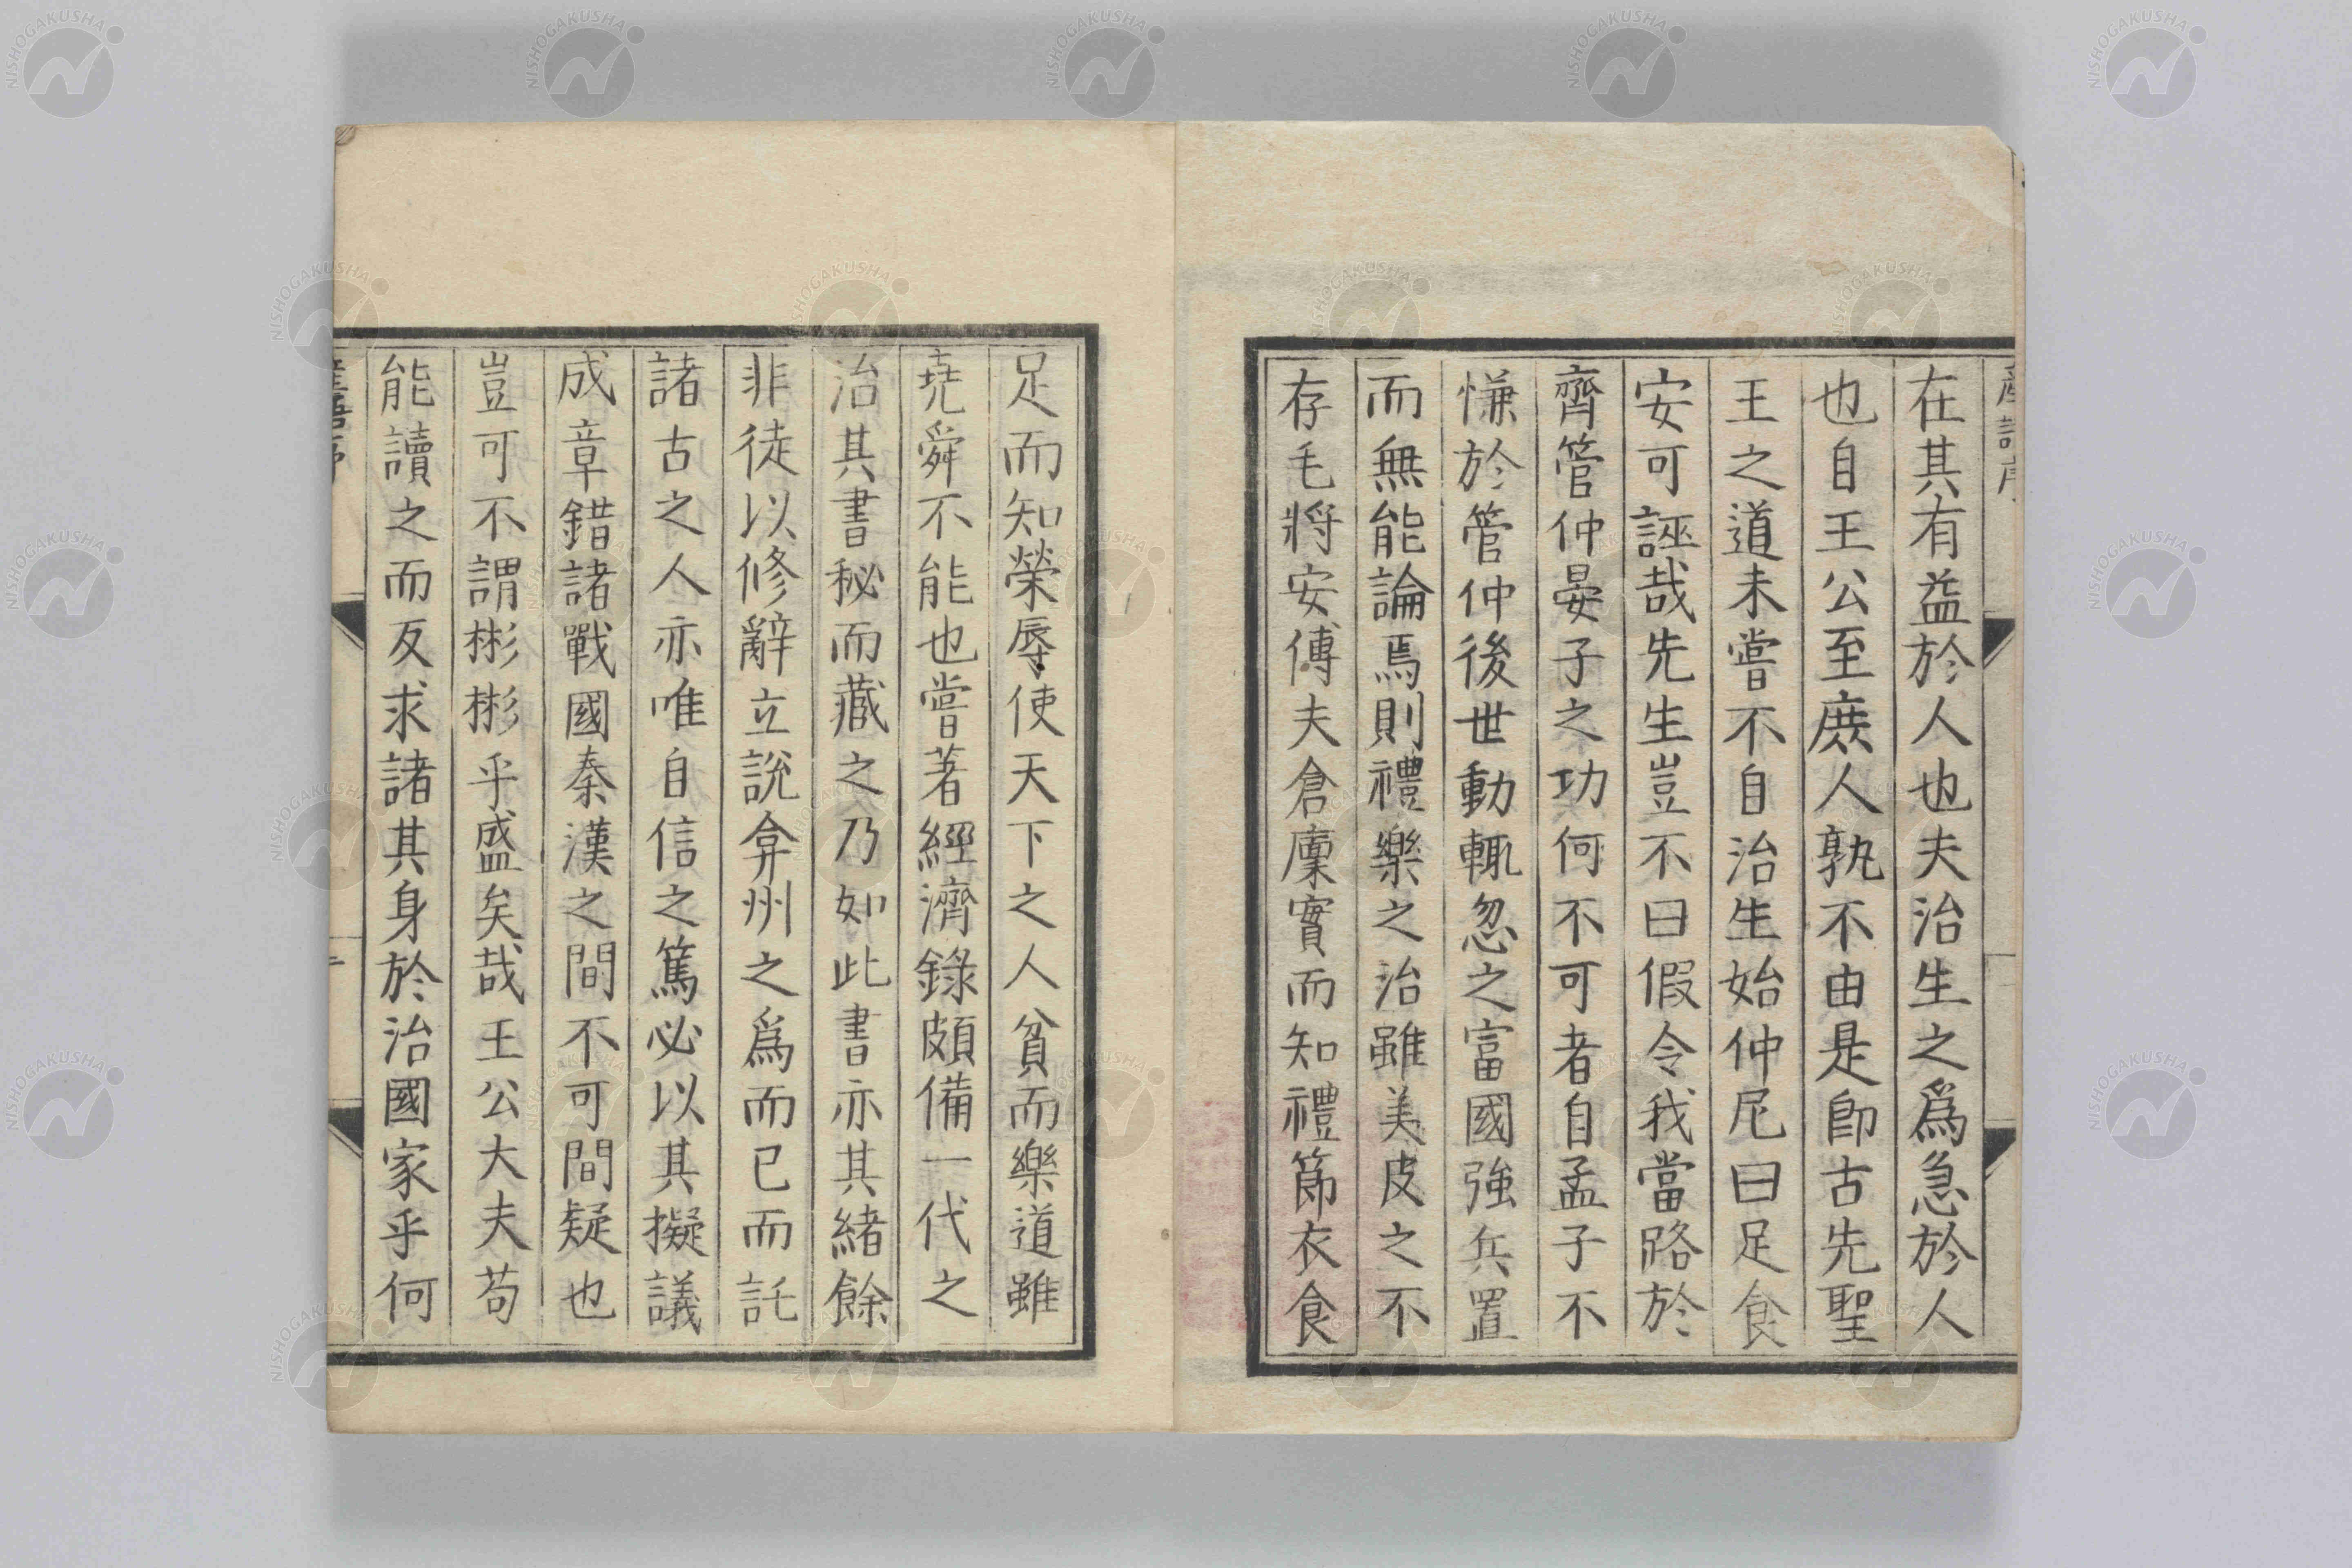 在其有益於人也夫治生之爲急於人
也自王公至庻人孰不由是卽古先聖
王之道未嘗不自治生始仲尼曰足食
安可誣哉先生豈不曰假令我當路於
齊管仲晏子之功何不可者自孟子不
慊於管仲後世動輒忽之富國強兵置
而無能論焉則禮樂之治雖美皮之不
存毛將安傅夫倉廩實而知禮節衣食
足而知榮辱使天下之人貧而樂道雖
堯舜不能也嘗著經濟錄頗備一代之
治其書秘而藏之乃如此書亦其緒餘
非徒以修辭立說弇州之爲而已而託
諸古之人亦唯自信之篤必以其擬議
成章錯諸戰國秦漢之間不可間疑也
豈可不謂彬彬乎盛矣哉王公大夫苟
能讀之而反求諸其身於治國家乎何
NISHOGAKUSHA